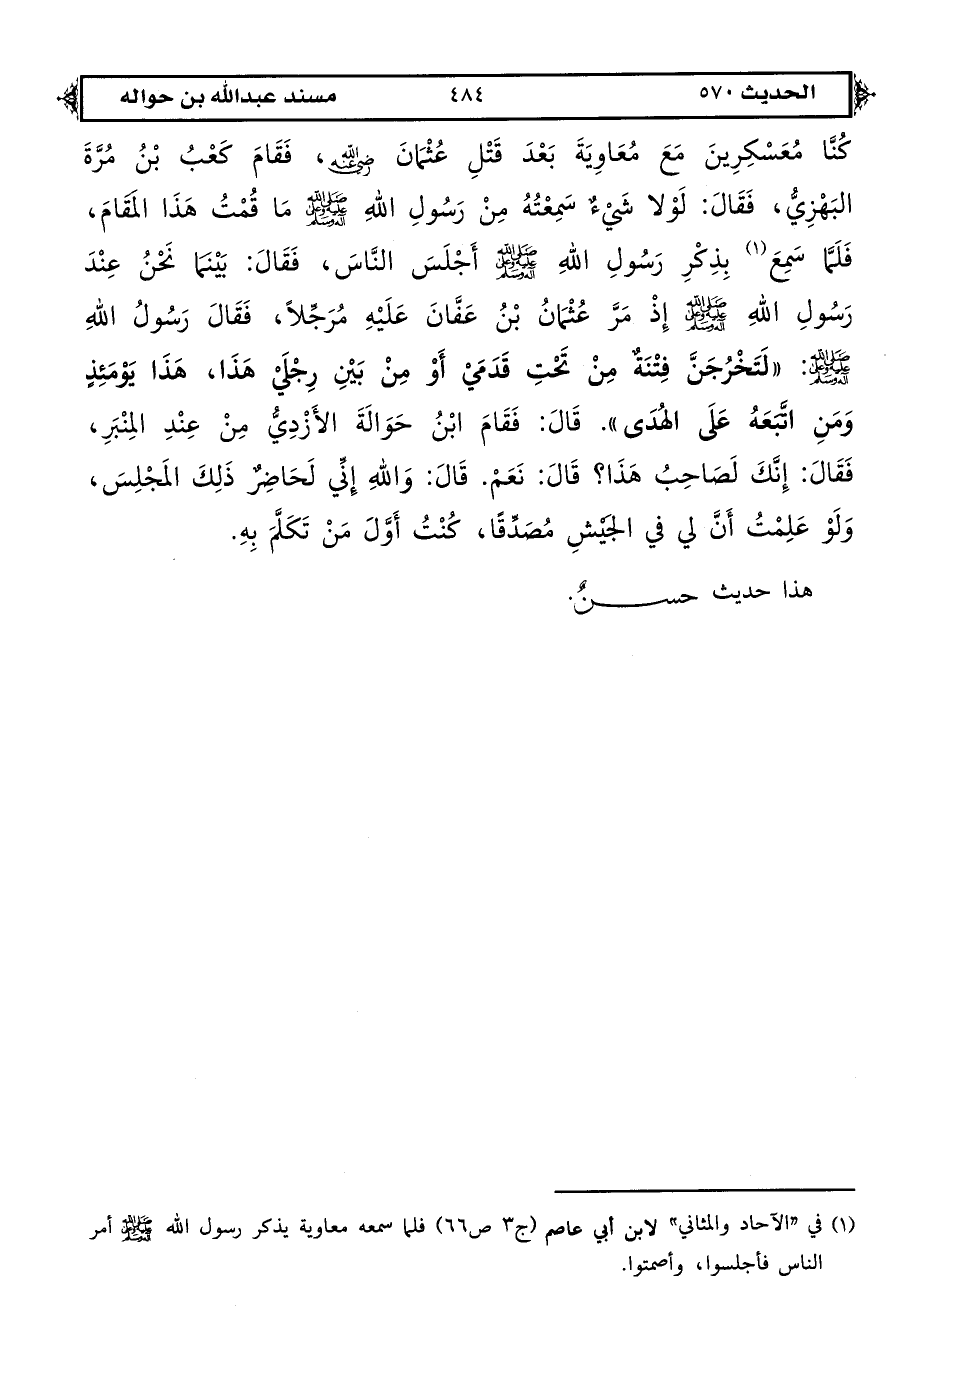 الحديث ٥٧٠ ٤٨٤ مسند عبدالله بن حواله
كُنَّا مُعَسْكِرِينَ مَعَ مُعَاوِيَةَ بَعْدَ قَتْلِ عُثْمَانَ رضي الله عنه، فَقَامَ كَعْبُ بْنُ مُرَّةَ
البَهْزِيُّ، فَقَالَ: لَوْلا شَيْءٌ سَمِعْتُهُ مِنْ رَسُولِ اللهِ ﷺ مَا قُمْتُ هَذَا المَقَامَ،
فَلَمَّا سَمِعَ(١) بِذِكْرِ رَسُولِ اللهِ ﷺ أَجْلَسَ النَّاسَ، فَقَالَ: بَيْنَمَا نَحْنُ عِنْدَ
رَسُولِ اللهِ ﷺ إِذْ مَرَّ عُثْمَانُ بْنُ عَفَّانَ عَلَيْهِ مُرَجِّلاً، فَقَالَ رَسُولُ اللهِ
ﷺ: «لَتَخْرُجَنَّ فِتْنَةٌ مِنْ تَحْتِ قَدَمَيْ أَوْ مِنْ بَيْنِ رِجْلَيْ هَذَا، هَذَا يَوْمَئِذٍ
وَمَنِ اتَّبَعَهُ عَلَى الهُدَى». قَالَ: فَقَامَ ابْنُ حَوَالَةَ الأَزْدِيُّ مِنْ عِنْدِ المِنْبَرِ،
فَقَالَ: إِنَّكَ لَصَاحِبُ هَذَا؟ قَالَ: نَعَمْ. قَالَ: وَاللهِ إِنِّي لَحَاضِرٌ ذَلِكَ المَجْلِسَ،
وَلَوْ عَلِمْتُ أَنَّ لِي فِي الجَيْشِ مُصَدِّقًا، كُنْتُ أَوَّلَ مَنْ تَكَلَّمَ بِهِ.
هذا حديث حســـــنٌ.
(١) في "الآحاد والمثاني" لابن أبي عاصم (ج٣ ص٦٦) فلما سمعه معاوية يذكر رسول الله ﷺ أمر
الناس فأجلسوا، وأصمتوا.